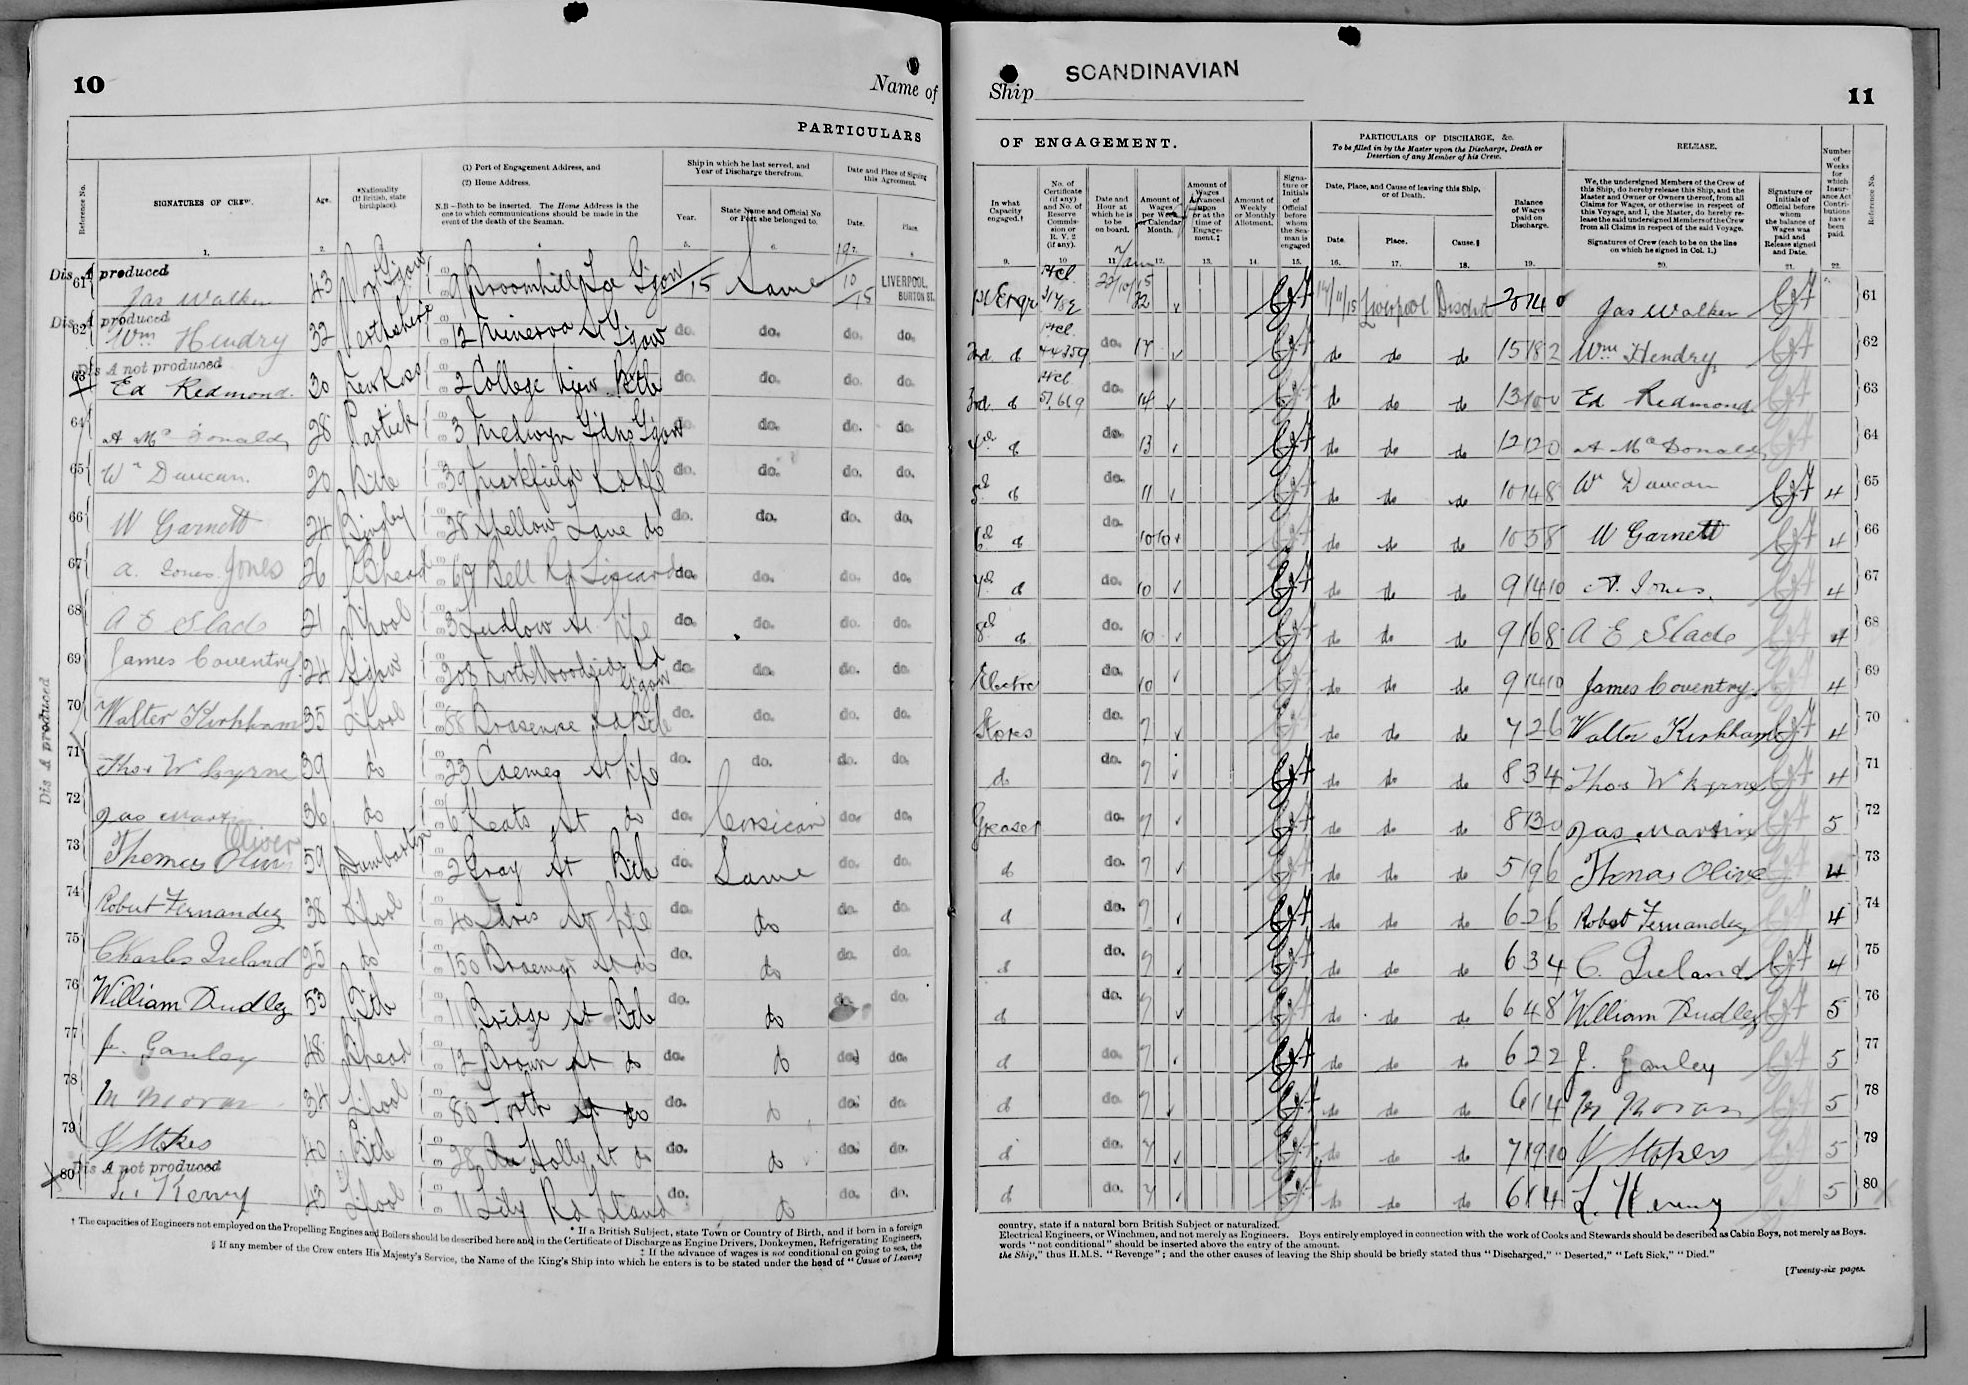 10
Name of
PARTICULARS
Reference No.
SIGNATURES OF CREW.
Age.
*Nationality (If British, state birthplace).
(1) Port of Engagement Address, and
(2) Home Address.
N.B—Both to be inserted. The Home Address is the one to which communications should be made in the event of the death of the Seaman.
Ship in which he last served, and Year of Discharge therefrom.
Year.
State Name and Official No or Port she belonged to.
Date and Place of Signing this Agreement.
Date.
Place.
1. 2. 5. 6.
Dis. A produced
61 Jas Walker 43 9 Broomhill Tce Glgow 15 Same 19/10/15 LIVERPOOL, BURTON ST.
Dis. A produced
62 Wm Hendry 32 Perthshire 12 Minerva St Glgow do. do. do. do.
Dis A not produced
63 Ed Redmond. 30 New Ross 2 College View Btle do. do. do. do.
64 A McDonald 28 Partick 3 Medwyn Gdns Glgow do. do. do. do.
65 Wm Duncan. 20 Btle 39 do. do. do. do.
66 W Garnett 24 Bingley 28 Spellow Lane do do. do. do. do.
67 A. Jones Jones 26 B'head 67 Bell Rd Liscard do. do. do. do.
68 A E Slade 21 L'pool 3 Ludlow St L'pl do. do. do. do.
69 James Coventry 24 Glgow 208 North Woodside Rd Glgow do. do. do. do.
70 Walter Kirkham 35 L'pool 58 Brasenose Rd Btle do. do. do. do.
71 Thos W Byrne 39 do 23 St L'pl do. do. do. do.
72 Jas Martin 36 do 6 Keats St do do. Corsican do. do.
73 Thomas Oliver Oliver 59 Dumbarton 2 Gray St Btle do. Same do. do.
74 Robert Fernandez 38 L'pool 40 St L'pl do. do do. do.
75 Charles Ireland 25 do 150 Braemar St do do. do do. do.
76 William Dudley 53 Btle 11 Bridge St Btle do. do do. do.
77 J. Ganley 48 B'head 12 Brown St do do. do do. do.
78 M Moran 34 L'pool 80 St do do. do do. do.
79 J Stokes 40 Btle 28 Holly St do do. do do. do.
Dis A not produced
80 L. Kenny 43 L'pool 11 Lily Rd L'tland do. do do. do.
Dis A produced
* If a British Subject, state Town or Country of Birth, and if born in a foreign
† The capacities of Engineers not employed on the Propelling Engines and Boilers should be described here and in the Certificate of Discharge as Engine Drivers, Donkeymen, Refrigerating Engineers,
‡ If the advance of wages is not conditional on going to sea, the
§ If any member of the Crew enters His Majesty's Service, the Name of the King's Ship into which he enters is to be stated under the head of "Cause of Leaving
Ship SCANDINAVIAN
11
OF ENGAGEMENT.
PARTICULARS OF DISCHARGE, &c.
To be filled in by the Master upon the Discharge, Death or Desertion of any Member of his Crew.
RELEASE.
In what Capacity engaged.†
No. of Certificate (if any) and No. of Reserve Commission or R. V. 2 (if any).
Date and Hour at which he is to be on board.
Amount of Wages per Week or Calendar Month.
Amount of Wages Advanced upon or at the time of Engagement.‡
Amount of Weekly or Monthly Allotment.
Signature or Initials of Official before whom the Seaman is engaged
Date, Place, and Cause of leaving this Ship, or of Death.
Date. Place. Cause.§
Balance of Wages paid on Discharge.
We, the undersigned Members of the Crew of this Ship, do hereby release this Ship, and the Master and Owner or Owners thereof, from all Claims for Wages, or otherwise in respect of this Voyage, and I, the Master, do hereby release the said undersigned Members of the Crew from all Claims in respect of the said Voyage.
Signatures of Crew (each to be on the line on which he signed in Col. 1.)
Signature or Initials of Official before whom the balance of Wages was paid and Release signed and Date.
Number of Weeks for which Insurance Act Contributions have been paid.
Reference No.
9. 10 11 12. 13. 14. 15. 16. 17. 18. 19. 20. 21. 22.
1st Engr 22 14/11/15 Liverpool Dischd 20 14 0 Jas Walker 61
2nd do 44359 do. 17 do do do 15 18 2 Wm Hendry 62
3rd do do. 14 do do do 13 10 0 Ed Redmond 63
4th do do. 13 do do do 12 12 0 A McDonald 64
5th do do. 11 do do do 10 14 8 Wm Duncan 4 65
6th do do. 10 10 do do do 10 5 8 W Garnett 4 66
7th do do. 10 do do do 9 14 10 A. Jones. 4 67
8th do do. 10 do do do 9 16 8 A E Slade 4 68
Electrn do. 10 do do do 9 14 10 James Coventry 4 69
Stores do. 7 do do do 7 2 6 Walter Kirkham 4 70
do do. 7 do do do 8 3 4 Thos W Byrne 4 71
Greaser do. 7 do do do 8 13 0 Jas Martin 5 72
do do. 7 do do do 5 19 6 Thomas Oliver 4 73
do do. 7 do do do 6 2 6 Robert Fernandez 4 74
do do. 7 do do do 6 3 4 C. Ireland 4 75
do do. 7 do do do 6 4 8 William Dudley 5 76
do do. 7 do do do 6 2 2 J. Ganley 5 77
do do. 7 do do do 6 1 4 M Moran 5 78
do do. 7 do do do 7 19 10 J Stokes 5 79
do do. 7 do do do 6 1 4 L. Kenny 5 80
country, state if a natural born British Subject or naturalized.
Electrical Engineers, or Winchmen, and not merely as Engineers. Boys entirely employed in connection with the work of Cooks and Stewards should be described as Cabin Boys, not merely as Boys.
words "not conditional" should be inserted above the entry of the amount.
the Ship," thus H.M.S. "Revenge"; and the other causes of leaving the Ship should be briefly stated thus "Discharged," "Deserted," "Left Sick," "Died."
[Twenty-six pages.